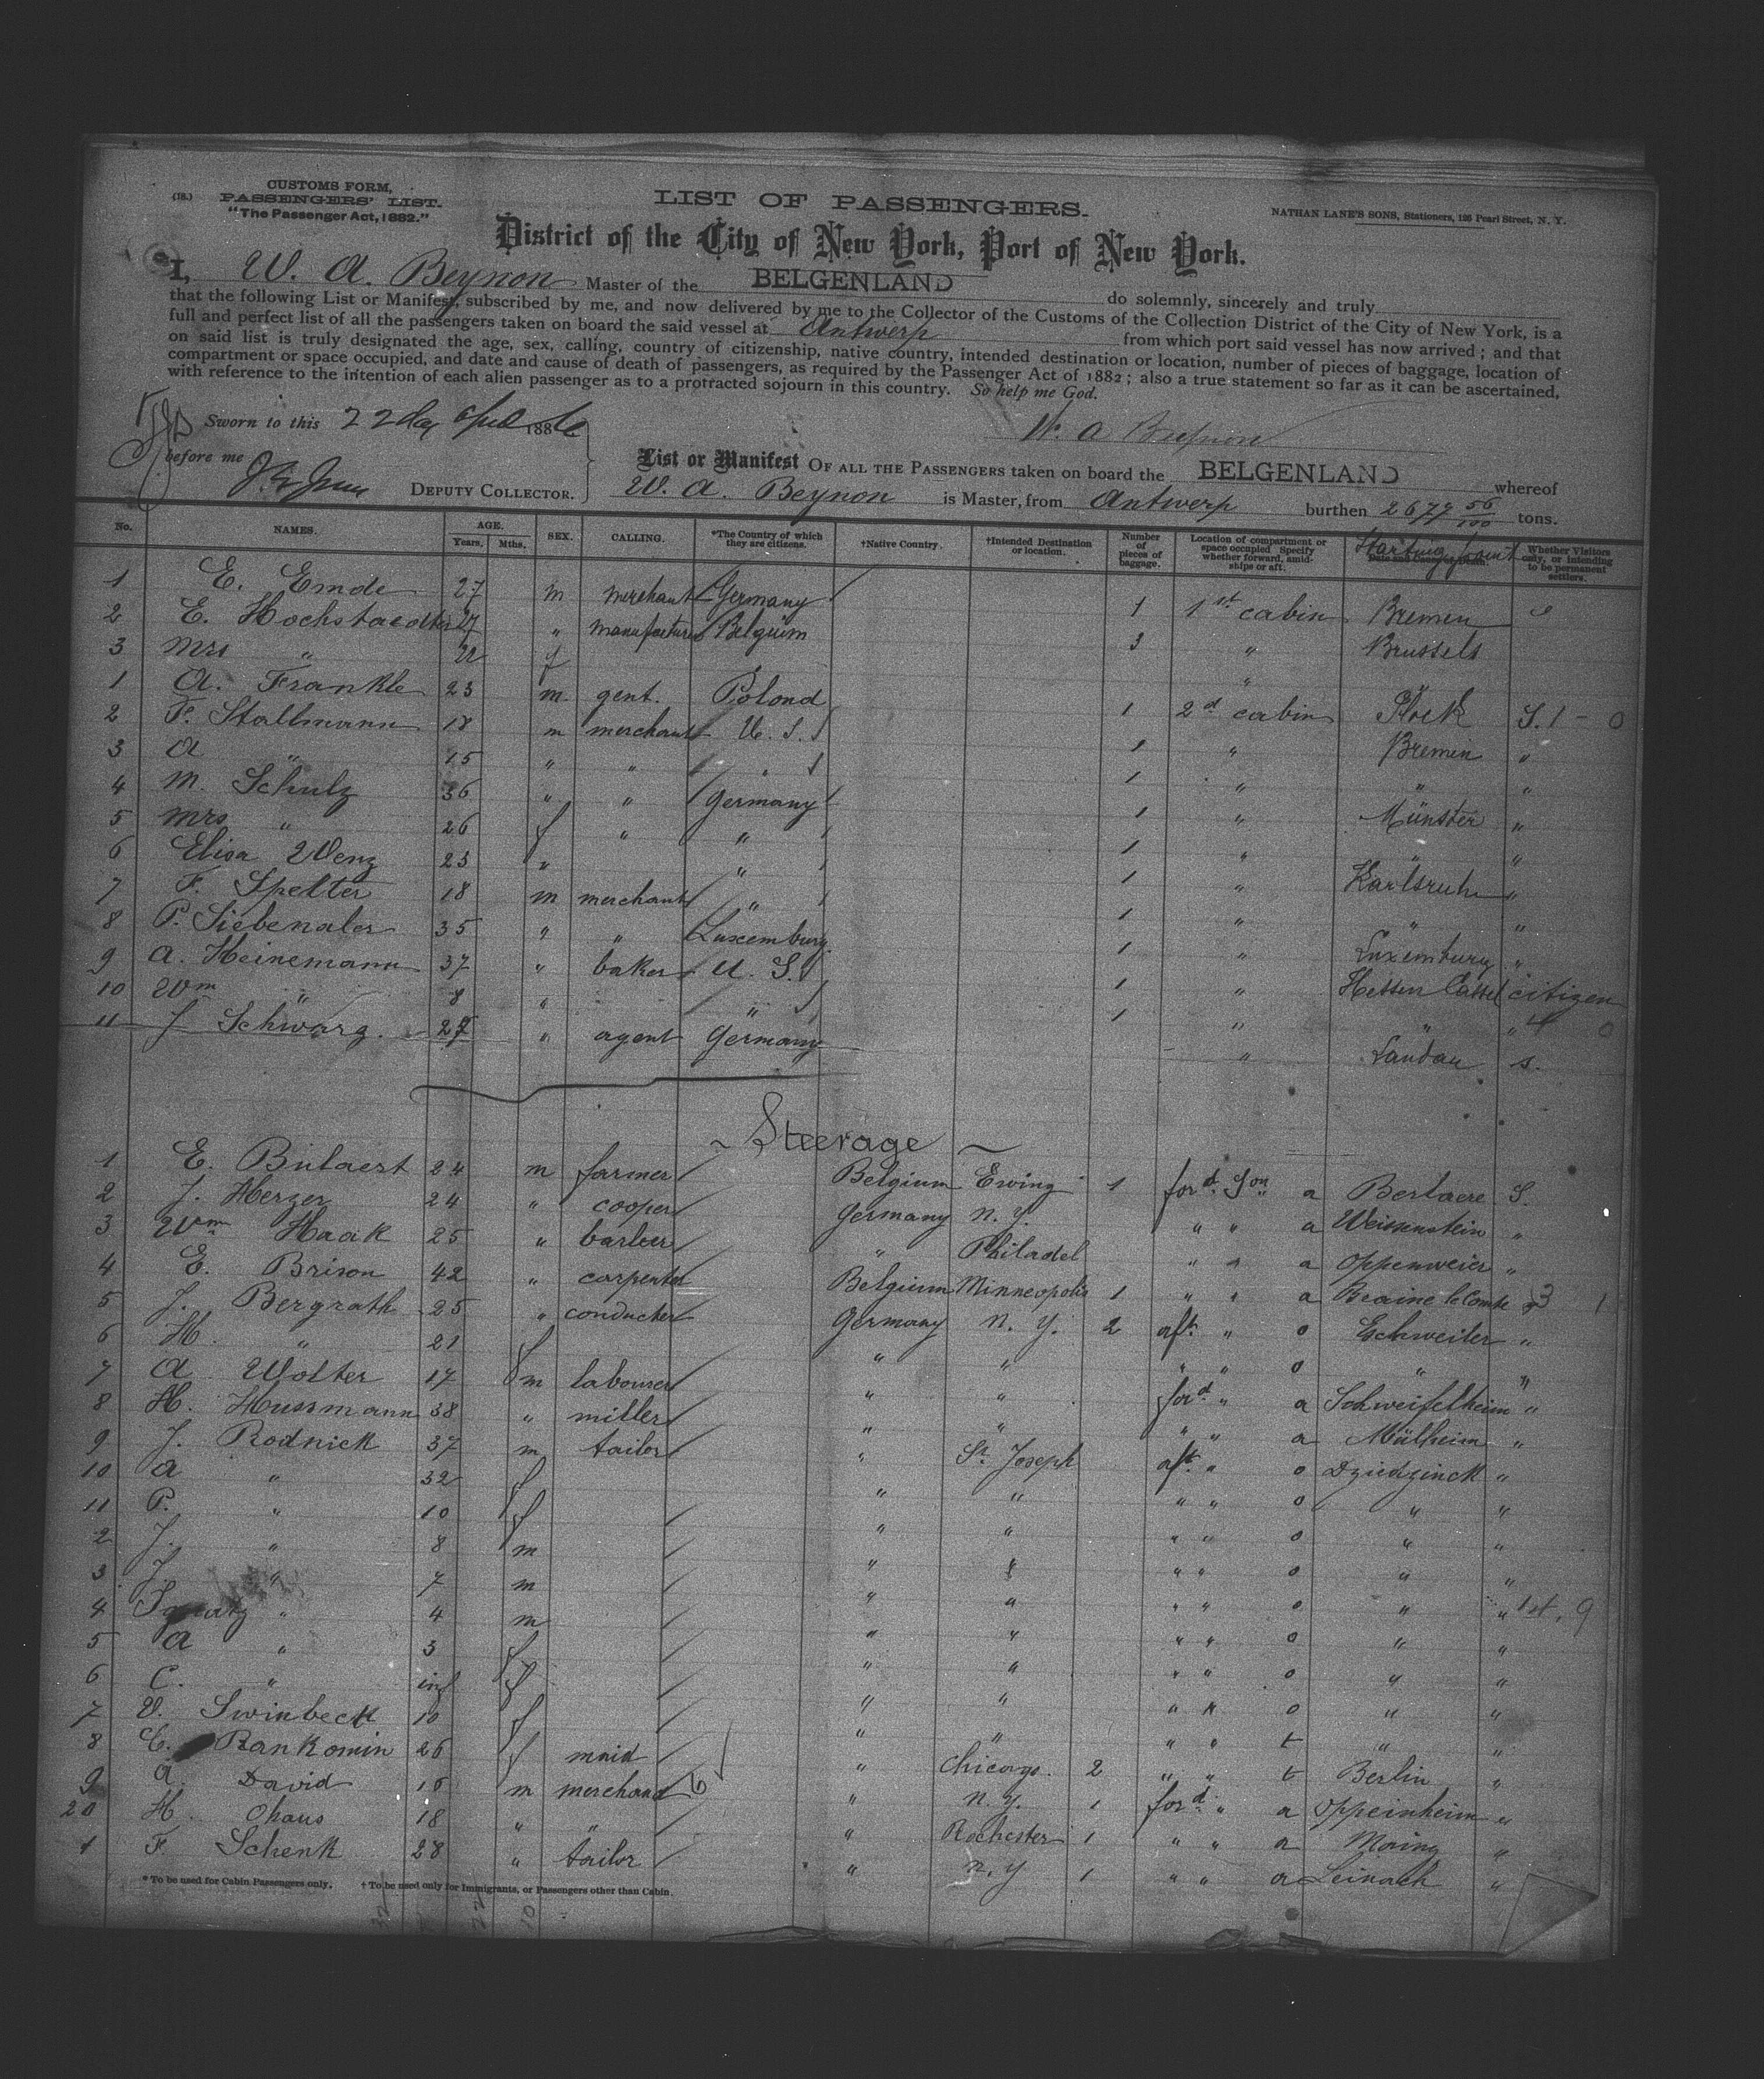 CUSTOMS FORM,
(18.) PASSENGERS' LIST.
"The Passenger Act, 1882."
LIST OF PASSENGERS.
NATHAN LANE'S SONS, Stationers, 126 Pearl Street, N. Y.
District of the City of New York, Port of New York.
I, W. A. Beynon Master of the BELGENLAND do solemnly, sincerely and truly
that the following List or Manifest, subscribed by me, and now delivered by me to the Collector of the Customs of the Collection District of the City of New York, is a
full and perfect list of all the passengers taken on board the said vessel at Antwerp from which port said vessel has now arrived; and that
on said list is truly designated the age, sex, calling, country of citizenship, native country, intended destination or location, number of pieces of baggage, location of
compartment or space occupied, and date and cause of death of passengers, as required by the Passenger Act of 1882; also a true statement so far as it can be ascertained,
with reference to the intention of each alien passenger as to a protracted sojourn in this country. So help me God.
Sworn to this 22 day April 1886
W. A Beynon
before me
DEPUTY COLLECTOR.
List or Manifest OF ALL THE PASSENGERS taken on board the BELGENLAND whereof
W. A. Beynon is Master, from Antwerp burthen 2677 56/100 tons.
No. NAMES. AGE. Years. Mths. SEX. CALLING. *The Country of which they are citizens. †Native Country. †Intended Destination or location. Number of pieces of baggage. Location of compartment or space occupied Specify whether forward, amidships or aft. Starting point Date and Cause of Death. Whether Visitors only, or intending to be permanent settlers.
1 E. Emde 27 m merchant Germany 1 1st cabin Bremen
2 E. Hochstaedter 27 " manufacturer Belgium 3 " Brussels
3 Mrs " 22 f "
1 A. Frankle 23 m gent. Poland 1 2d cabin Plock S. 1 - 0
2 F. Stallmann 18 m merchant U. S. 1 " Bremen "
3 A " 15 " " " 1 " " "
4 M. Schulz 36 " " Germany 1 " Münster "
5 Mrs " 26 f " " 1 " " "
6 Elisa Wenz 23 " " 1 " Karlsruh "
7 F. Spelter 18 m merchant " 1 " " "
8 P. Siebenaler 35 " " Luxemburg 1 " Luxemburg "
9 A. Heinemann 37 " baker U. S. 1 " Hessen Cassel citizen
10 Wm " 8 " " 1 " " " 4 0
11 J Schwarz. 27 " agent Germany " Landau s.
~ Steerage ~
1 E. Bulaert 24 m farmer Belgium Ewing 1 ford Son a Berlaere S.
2 J. Herzer 24 " cooper Germany N. Y. " " a Weissenstein "
3 Wm Haak 25 " barber " Philadel " " a Oppenweier "
4 E. Brison 42 " carpenter Belgium Minneapolis 1 " " a Braine le Comte 3 1
5 J. Bergrath 25 " conducter Germany N. Y. 2 aft " o Eschweiler "
6 H. " 21 f " " " " o " "
7 A Wolter 17 m labourer " " ford " a Schweifelheim "
8 H. Hussmann 38 " miller " " " " a Mülheim "
9 J. Rodnick 37 m tailor " St. Joseph aft " o Dziedzinck "
10 A " 32 f " " " " o " "
11 P. " 10 f " " " " o " "
2 J. " 8 m " " " " o " "
3 J. " 7 m " " " " o " "
4 Ignatz " 4 m " " " " o " " 1st. 9
5 A " 3 f " " " " o " "
6 C. " inf f " " " " o " "
7 V. Swinbeck 10 f " " " " t " "
8 C. Rankomin 26 f maid " Chicago. 2 " " t Berlin "
9 A. David 16 m merchand " N. Y. 1 ford " a Oppeinheim "
20 H. Ohaus 18 " " " Rochester 1 " " a "
1 F. Schenk 28 " tailor " N. Y 1 " " a Leinach "
* To be used for Cabin Passengers only. † To be used only for Immigrants, or Passengers other than Cabin.